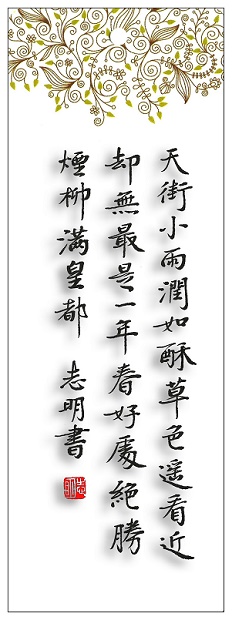 天街小雨潤如酥草色遥看近
却無最是一年春好處絕勝
煙柳滿皇都 志明書
志明